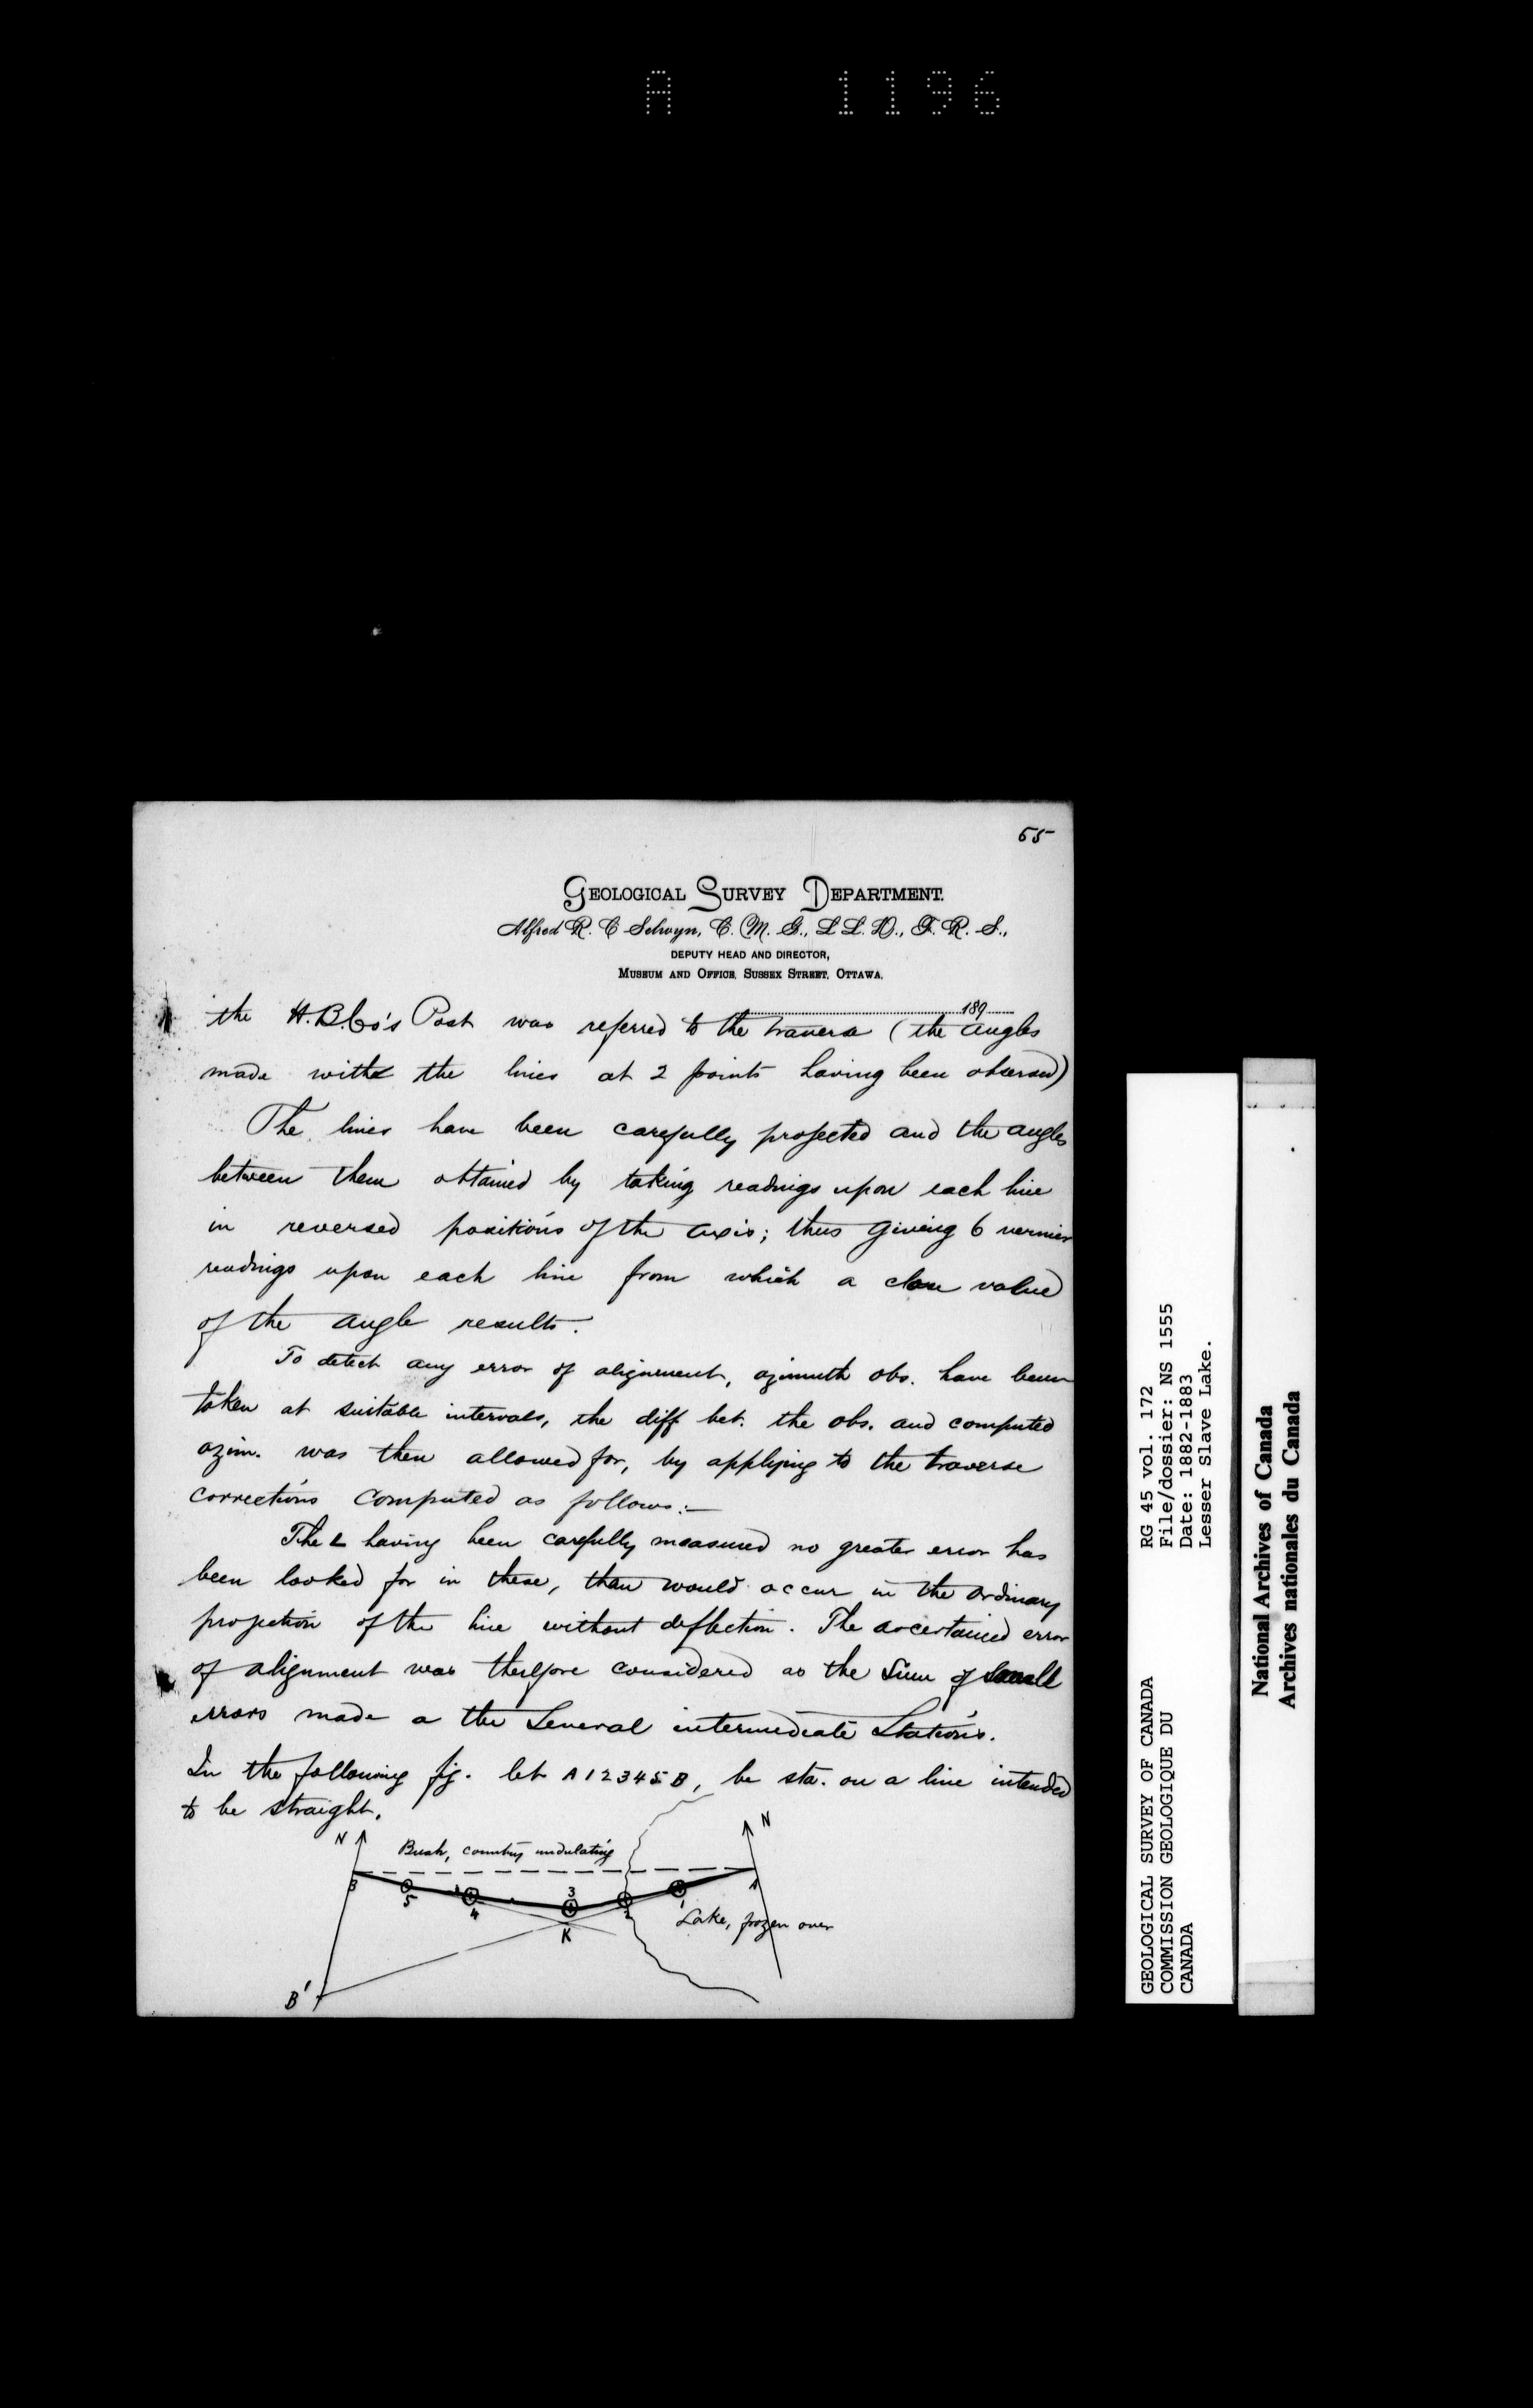 A 1196
55
GEOLOGICAL SURVEY DEPARTMENT.
Alfred R. C Selwyn, C. M. G., L L. D., F. R. S.,
DEPUTY HEAD AND DIRECTOR,
MUSEUM AND OFFICE, SUSSEX STREET, OTTAWA,
189
the H.B.Co's Post was referred to the traverse (the angles
made with the lines at 2 points having been observed)
The lines have been carefully projected and the angles
between them obtained by taking readings upon each line
in reversed positions of the axis; thus giving 6 vernier
readings upon each line from which a close value
of the angle results.
To detect any error of alignment, azimuth obs. have been
taken at suitable intervals, the diff bet. the obs. and computed
azim. was then allowed for, by applying to the traverse
corrections computed as follows:—
The ∠ having been carefully measured no greater error has
been looked for in these, than would occur in the ordinary
projection of the line without deflection. The ascertained error
of alignment was therefore considered as the sum of small
errors made a the several intermediate stations.
In the following fig. let A 1 2 3 4 5 B, be sta. on a line intended
to be straight.
N
N
Bush, country undulating
B
5
4
3
2
1
A
K
Lake, frozen over
B'
GEOLOGICAL SURVEY OF CANADA
COMMISSION GEOLOGIQUE DU
CANADA
RG 45 vol. 172
File/dossier: NS 1555
Date: 1882-1883
Lesser Slave Lake.
National Archives of Canada
Archives nationales du Canada